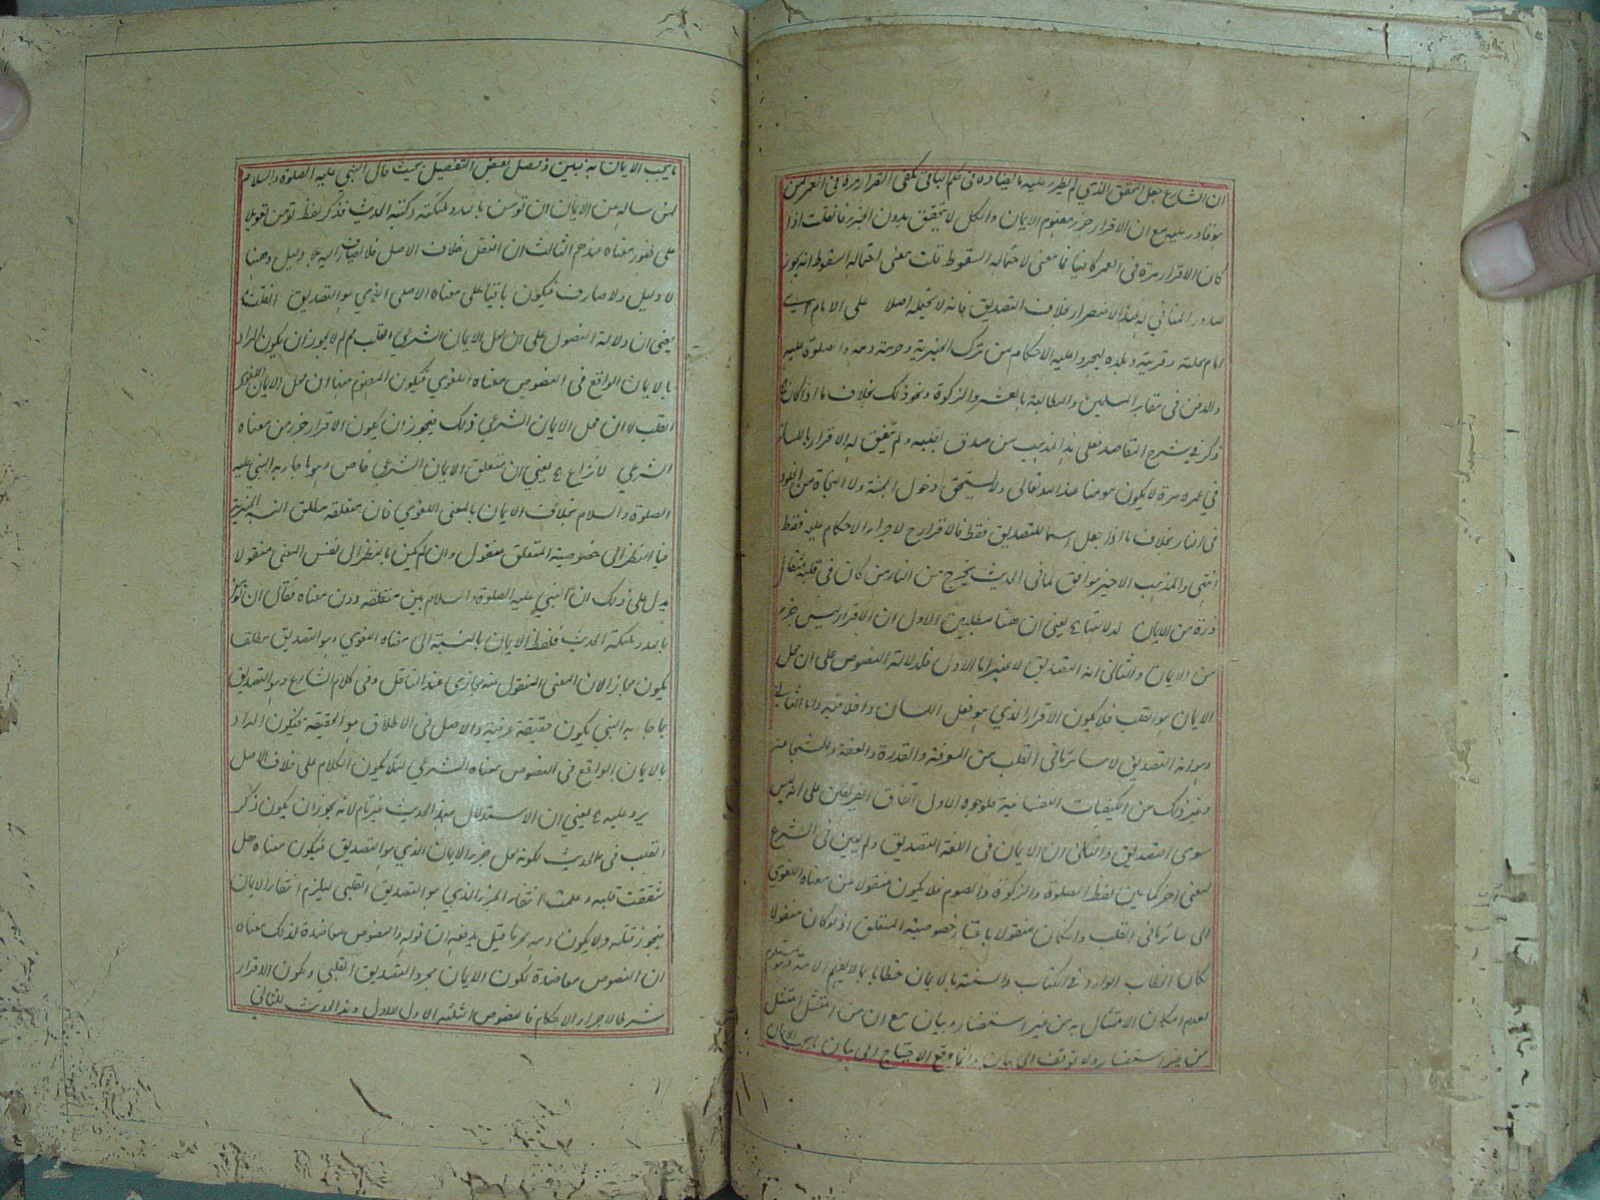 ان الشارع جعل المحقق الذي لم يطرء عليه ما يضاده في حكم الباقي يكفي الاقرار مرة في العمر لمن
هو قادر عليه مع ان الاقرار جزء مفهوم الايمان والكل لا يتحقق بدون الجزء فان قلت اذا
كان الاقرار مرة في العمر كافيا فما معنى لاحتماله السقوط قلت معنى احتماله السقوط انه يجوز
صدور المنافي له عند الاضطرار بخلاف التصديق فانه لا يحتمله اصلا على الامام اي
امام محلته وقريته وبلده ليجرد عليه الاحكام من ترك الجزية وحرمة دمه والصلوة عليه
والدفن في مقابر المسلمين والمطالبة بالعشر والزكوة ونحو ذلك بخلاف ما اذا كان
ذكر في شرح المقاصد فعلى هذا المذهب من صدق بقلبه ولم يتفق له الاقرار باللسان
في عمره مرة لا يكون مومنا عند الله تعالى ولا يستحق دخول الجنة ولا النجاة من الخلود
في النار بخلاف ما اذا جعل اسما للتصديق فقط فالاقرار ح لاجراء الاحكام عليه فقط
انتهى والمذهب الاخير موافق لما في الحديث يخرج من النار من كان في قلبه مثقال
ذرة من الايمان يعني ان هنا مطلبين الاول ان الاقرار ليس جزء
من الايمان والثاني انه التصديق لا غير اما الاول فلدلالة النصوص على ان محل
الايمان هو القلب فلا يكون الاقرار الذي هو فعل اللسان داخلا فيه واما الثاني
وهو انه التصديق لا سائر ما في القلب من المعرفة والقدرة والعفة والشجاعة
وغير ذلك من الكيفيات النفسانية فلوجوه الاول اتفاق الفريقين على انه ليس
سوى التصديق والثاني ان الايمان في اللغة التصديق ولم يعين في الشرع
لمعنى اخر كما بين لفظ الصلوة والزكوة والصوم فلا يكون منقولا من معناه اللغوي
الى سائر ما في القلب وان كان منقولا باعتبار خصوصية المتعلق اذ لو كان منقولا
لكان الخطاب الوارد في الكتاب والسنة بالايمان خطابا بما لا يفهم
لعدم امكان الامتثال به من غير استفسار وبيان مع ان من امتثل امتثل
من غير استفسار ولا توقف الى بيان وانما وقع الاحتياج الى بيان ما يجب الايمان
ما يجب الايمان به فبين وفصل بعض التفصيل بحيث قال النبي عليه الصلوة والسلام
لمن ساله عن الايمان ان تومن بالله وملئكته وكتبه الحديث فذكر لفظ تومن تعويلا
على ظهور معناه عندهم الثالث ان النقل خلاف الاصل فلا يصار اليه بلا دليل وههنا
لا دليل ولا صارف فيكون باقيا على معناه الاصلي الذي هو التصديق
يعني ان دلالة النصوص على ان محل الايمان الشرعي القلب مم لم لا يجوز ان يكون المراد
بالايمان الواقع في النصوص معناه اللغوي فيكون المفهوم منها ان محل الايمان اللغوي
القلب لا ان محل الايمان الشرعي ذلك فيجوز ان يكون الاقرار جزء من معناه
الشرعي لا نزاع ع يعني ان متعلق الايمان الشرعي خاص وهو ما جاء به النبي عليه
الصلوة والسلام بخلاف الايمان بالمعنى اللغوي فان متعلقه مطلق النسبة الخبرية
فبا النظر الى خصوصية المتعلق منقول وان لم يكن بالنظر الى نفس المعنى منقولا
يدل على ذلك ان النبي عليه الصلوة والسلام بين متعلقه دون معناه فقال ان تومن
بالله وملئكته الحديث فلفظ الايمان بالنسبة الى معناه اللغوي وهو التصديق مطلقا
يكون مجازا لان المعنى المنقول عنه مجازي عند الناقل وفي كلام الشارع وهو التصديق
بما جاء به النبي يكون حقيقة عرفية والاصل في الاطلاق هو الحقيقة فيكون المراد
بالايمان الواقع في النصوص معناه الشرعي لئلا يكون الكلام على خلاف الاصل
يرد عليه ع يعني ان الاستدلال بهذا الحديث غير تام لانه يجوز ان يكون ذكر
القلب في الحديث لكونه محل جزء الايمان الذي هو التصديق فيكون معناه هل
شققت قلبه وعلمت انتفاء الجزء الذي هو التصديق القلبي ليلزم انتفاء الايمان
فيجوز قتله ولا يكون دمه محرما قيل يدفعه ان قوله والنصوص معاضدة لذلك معناه
ان النصوص معاضدة لكون الايمان مجرد التصديق القلبي وكون الاقرار
شرطا لاجراء الاحكام فالنصوص الثلثة الاول للاول وهذا الحديث للثاني